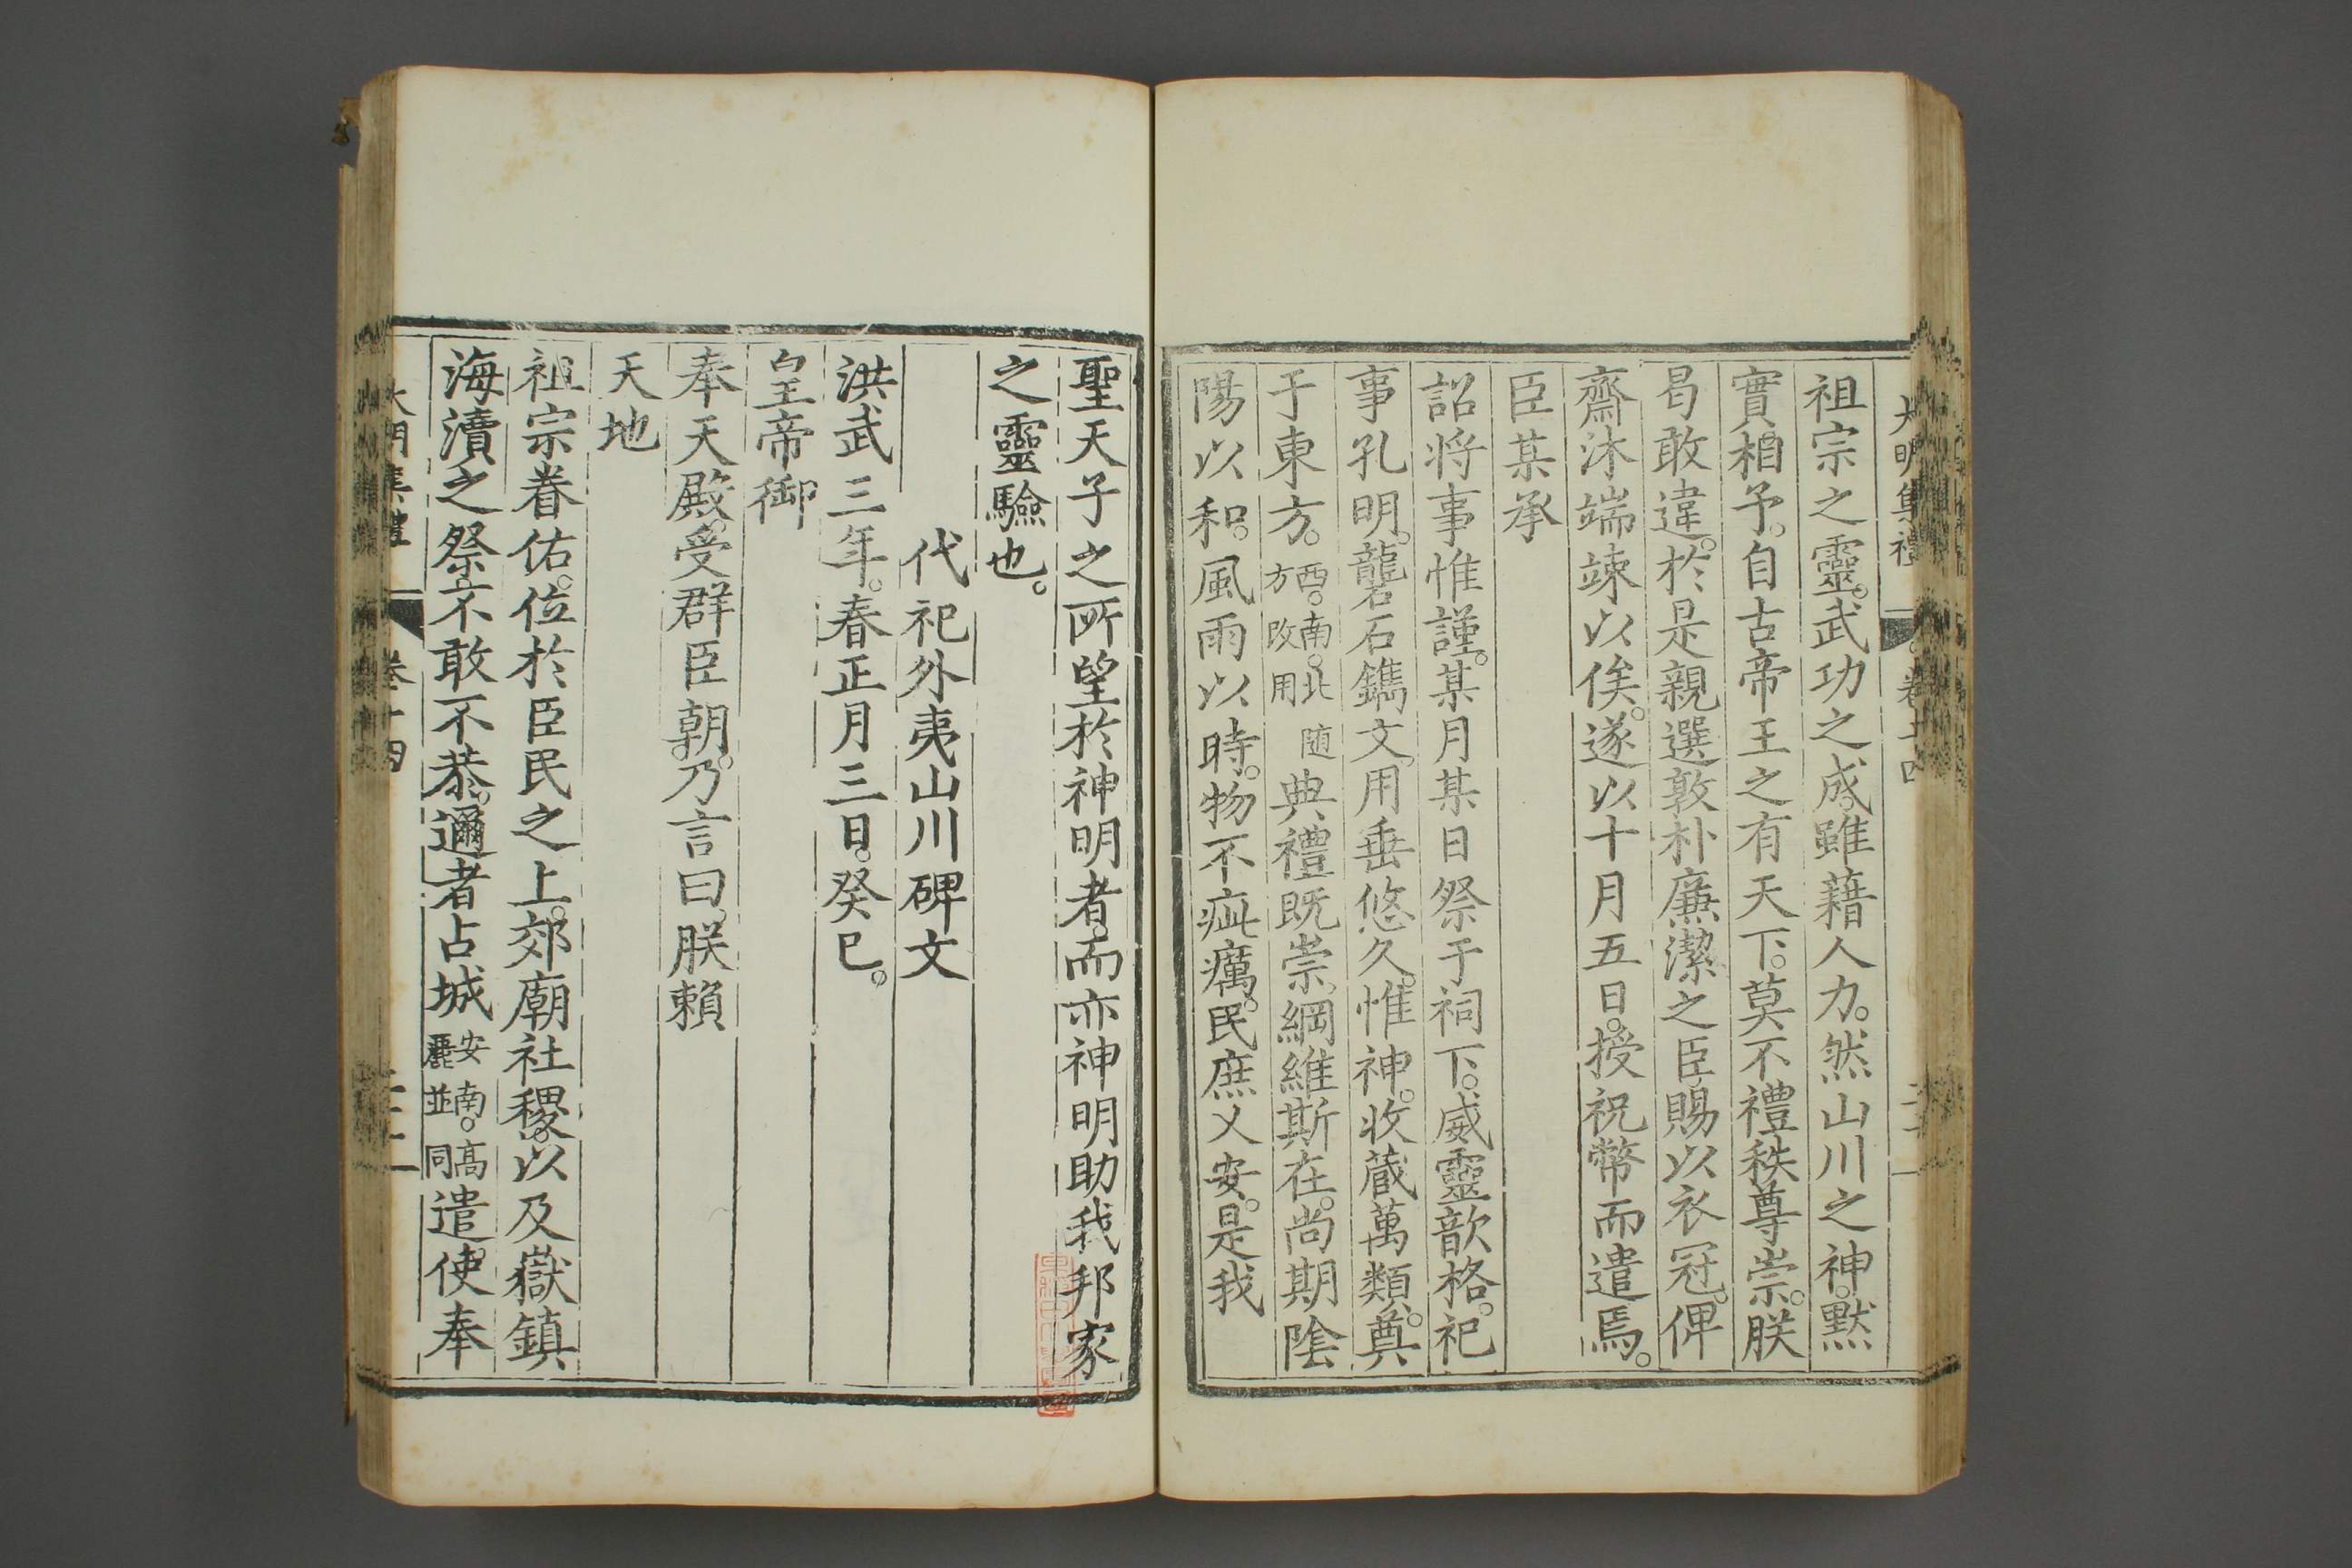 大明集禮 卷十四
祖宗之靈。武功之成。雖藉人力。然山川之神。默
實相予。自古帝王之有天下。莫不禮秩尊崇。朕
曷敢違。於是親選敦朴廉潔之臣。賜以衣冠。俾
齋沐端竦以俟。遂以十月五日。授祝幣而遣焉。
臣某承
詔将事惟謹。某月某日祭于祠下。威靈歆格。祀
事孔明。礱石鐫文。用垂悠久。惟神。收蔵萬類。奠
于東方。西。南。北方改用随典禮既崇。綱維斯在。尚期陰
陽以和。風雨以時。物不疵癘。民庶乂安。是我
聖天子之所望於神明者。而亦神明助我邦家
之靈驗也。
代祀外夷山川碑文
洪武三年。春正月三日。癸巳。
皇帝御
奉天殿。受群臣朝。乃言曰。朕賴
天地
祖宗眷佑。位於臣民之上。郊廟社稷。以及嶽鎮
海瀆之祭。不敢不恭。邇者占城安南。高麗並同遣使奉
大明集禮 卷十四